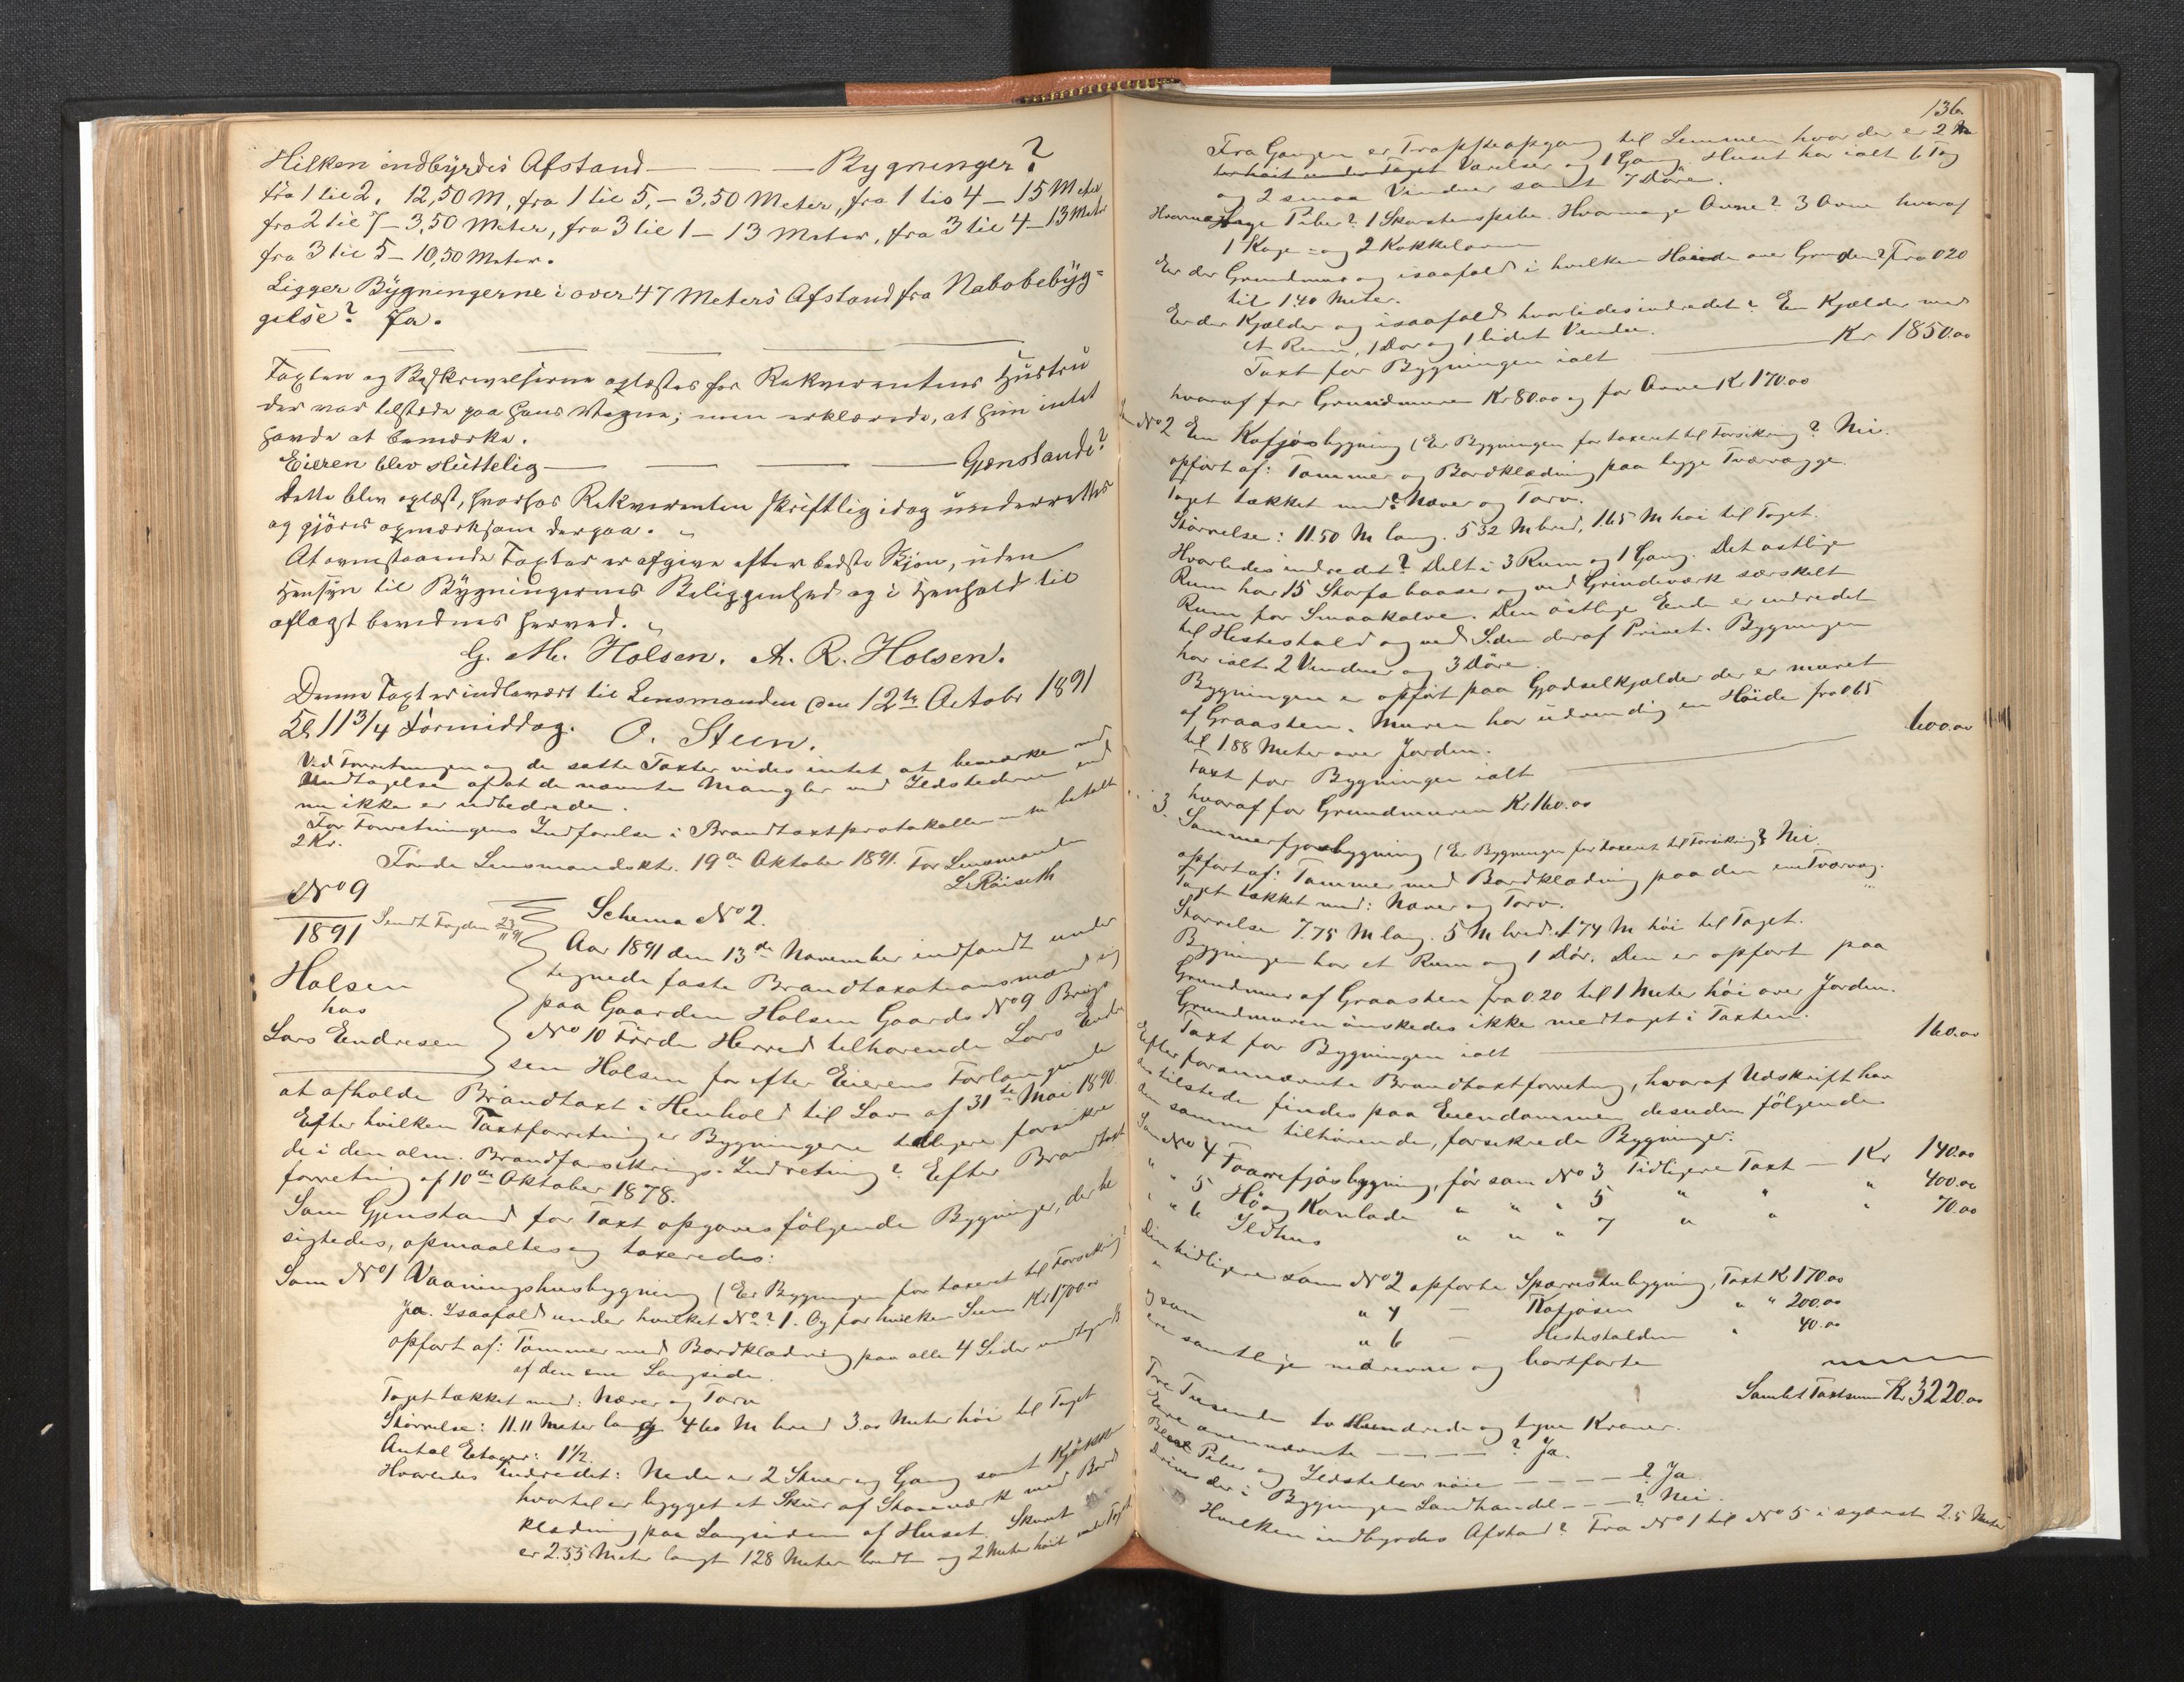 Hilken indbÿrdis Afstand — — — Bygninger?
fra 1 til 2. 12,50 M, fra 1 til 5, – 3,50 Meter, fra 1 til 4 – 15 Meter
fra 2 til 7 – 3,50 Meter, fra 3 til 1 – 13 Meter, fra 3 til 4 – 13 Meter
fra 3 til 5 – 10,50 Meter.
Ligger Bÿgningerne i over 47 Meters Afstand fra Nabobebÿg=
gelse? Ja.
Taxten og Beskrivelserne oplæstes for Rekvirentens Hustru
der var tilstede paa hans Vegne; men erklærede, at hun intet
havde at bemærke.
Eieren blev sluttelig — — — Genstande?
Dette blev oplæst, hvorhos Rekvirenten skriftlig idag underrettes
og gjöres opmerksom derpaa.
At ovenstaaende Taxter er afgivne efter bedste Skjön, uden
Hensyn til Bÿgningernes Beliggenhed og i Henhold til
aflagt bevidnes herved.
G. M. Holsen. A. R. Holsen.
Denne Taxt er indleveret til Lensmanden den 12te Octobr 1891
Kl 11 3/4 Formiddag. O. Steen.
Ved Forretningen og de satte Taxter vides intet at bemærke med
Undtagelse af at de nævnte Mangler ved Ildstederne end
nu ikke er udbedrede.
For Forretningens Indførelse i Brandtaxtprotokollen betalt
2 Kr.
Förde Lensmandsktr. 19de Oktober 1891. For Lensmanden
L Röiseth
No 9
1891 Sendt Fogden 23/11 91
Schema No 2.
Aar 1891 den 13de November indfandt under
tegnede faste Brandtaxationsmænd sig
Holsen
hos
Lars Endresen
paa Gaarden Holsen Gaards No 9 Brugs
No 10 Förde Herred tilhørende Lars Endre
sen Holsen for efter Eierens Forlangende
at afholde Brandtaxt i Henhold til Lov af 31te Mai 1890.
Efter hvilken Taxtforretning er Bygningerne tidligere forsikre
de i den alm. Brandforsikrings-Indretning? Efter Brandtaxt
forretning af 10de Oktober 1878.
Som Gjenstand for Taxt opgaves følgende Bygninger, der be
sigtedes, opmaaltes og taxeredes:
Som No 1 Vaaningshusbygning (Er Bygningen før taxeret til Forsikring?
Ja. Isaafald under hvilket No? 1. Og for hvilken Sum Kr 1700.00
opført af: Tömmer med Bordklædning paa alle 4 Sider undtagen
af den ene Langside.
Taget tækket med: Næver og Torv
Størrelse: 11.11 Meter lang 4.60 M bred 3.00 Meter høi til Taget
Antal Etager: 1½.
Hvorledes indredet: Nede er 2 Stuer og Gang samt Kjökken
hvortil er bygget et Skur af Stavværk med Bord
klædning paa Langsiden af Huset. Skuret
er 2.55 Meter langt 1.28 Meter bredt og 2 Meter høit under Taget
136
Fra Gangen er Trappeopgang til Lemmen hvor der er 2
Værelser og 1 Gang. Huset har ialt 6 Fag
og 2 smaa Vinduer samt 7 Döre.
Hvormange Piber? 1 Skorstenspibe. Hvormange Ovne? 3 Ovne hvoraf
1 Koge= og 2 Kakkelovne
Er der Grundmur og isaafald i hvilken Høide over Grunden? Fra 0.20
til 1.40 Meter.
Er der Kjælder og isaafald hvorledes indredet? En Kjælder med
et Rum, 1 Dør og 1 lidet Vindu.
Taxt for Bygningen ialt — Kr 1850.00
hvoraf for Grundmuren Kr 80.00 og for Ovne Kr 170.00
No 2 En Kofjösbygning (Er Bygningen før taxeret til Forsikring? Nei.
opført af: Tømmer og Bordklædning paa begge Tværvægge.
Taget tækket med? Næver og Torv.
Størrelse: 11.50 M lang. 5.32 M bred, 1.65 M høi til Taget.
Hvorledes indredet? Delt i 3 Rum og 1 Gang. Det østlige
Rum har 15 Storfebaaser og ved Grindeværk særskilt
Rum for Smaakalve. Den østlige Ende er indredet
til Hestestald og ved Siden deraf Privet. Bygningen
har ialt 2 Vinduer og 3 Döre.
Bygningen er opført paa Gjødselkjælder der er muret
af Graasten. Muren har udvendig en Höide fra 0.65
til 1.88 Meter over Jorden.
Taxt for Bygningen ialt — 600.00
hvoraf for Grundmuren Kr 160.00
3. Sommerfjøsbygning (Er Bygningen før taxeret til Forsikring? Nei.
opført af: Tømmer med Bordklædning paa den ene Tværvæg.
Taget tækket med: Næver og Torv.
Størrelse 7.75 M lang. 5 M bred. 1.74 M höi til Taget.
Bygningen har et Rum og 1 Dör. Den er opført paa
Grundmur af Graasten fra 0.20 til 1 Meter höi over Jorden.
Grundmuren önskedes ikke medtaget i Taxten.
Taxt for Bygningen ialt — 160.00
Efter forannævnte Brandtaxtforretning, hvoraf Udskrift har
tilstede findes paa Eiendommen desuden följende
den samme tilhørende, forsikrede Bygninger:
Som No 4 Faarefjösbygning, för som No 3 Tidligere Taxt — Kr 140.00
" " 5 Hö og Kornlade " " " 5 " " " 400.00
" " 6 Ildhus " " " 7 " " " 70.00
Den tidligere som No 2 opførte Sparrestubygning, Taxt K 170.00
" " 4 — Kofjösen " " 200.00
og som " 6 — Hestestalden " 40.00
ere samtlige nedrevne og bortførte
Samlet Taxtsum Kr 3220.00
Tre Tusende to Hundrede og tyve Kroner.
Ere ovennævnte — — — ? Ja.
Blev Piber og Ildsteder nöie — — — ? Ja
Drives der i Bygningen Landhandel — — ? Nei.
Hvilken indbyrdes Afstand? Fra No 1 til No 5 i sydvest 2.5 Meter